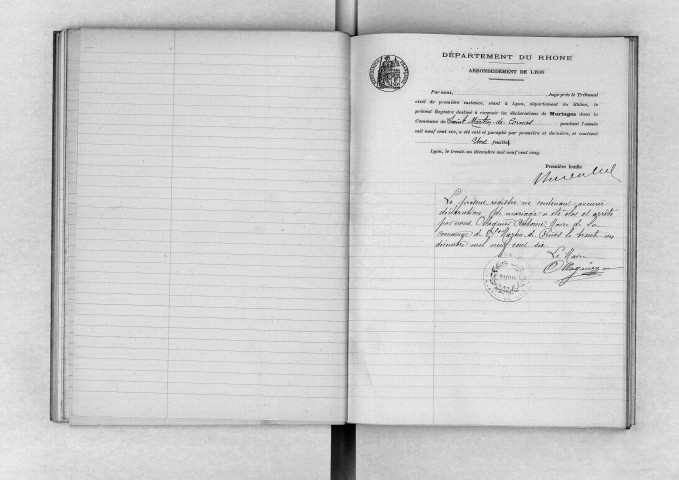 DÉPARTEMENT DU RHONE
ARRONDISSEMENT DE LYON
Par nous, , Juge près le Tribunal
civil de première instance, séant à Lyon, département du Rhône, le
présent Registre destiné à recevoir les déclarations de Mariages dans la
Commune de Saint Martin de Cornas pendant l'année
mil neuf cent six, a été coté et paraphé par première et dernière, et contient
Une feuille
Lyon, le trente-un décembre mil neuf cent cinq.
Première feuille
Le présent registre ne contenant aucune
déclaration de mariage a été clos et arrêté
par nous Maire de la
commune de St Martin de le trente un
décembre mil neuf cent six
Le Maire
MAIRIE